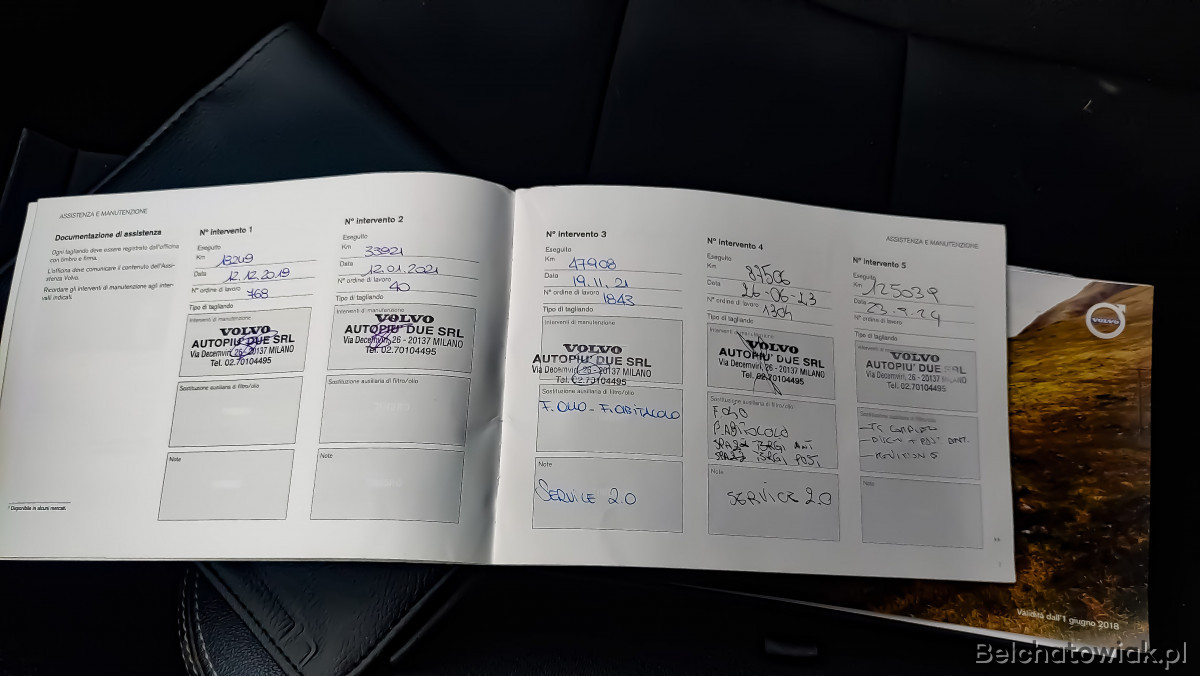 ASSISTENZA E MANUTENZIONE
Documentazione di assistenza
Ogni tagliando deve essere registrato dall'officina
con timbro e firma.
L'officina deve comunicare il contenuto dell'Assi-
stenza Volvo.
Ricordare gli interventi di manutenzione agli inter-
valli indicati.
Disponibile in alcuni mercati.
N° intervento 1
Eseguito
Km 18249
Data 12.12.2019
N° ordine di lavoro 768
Tipo di tagliando
Interventi di manutenzione
VOLVO
AUTOPIU' DUE SRL
Via Decemviri, 26 - 20137 MILANO
Tel. 02.70104495
Sostituzione ausiliaria di filtro/olio
Note
N° intervento 2
Eseguito
Km 33921
Data 12.01.2021
N° ordine di lavoro 40
Tipo di tagliando
Interventi di manutenzione
VOLVO
AUTOPIU' DUE SRL
Via Decemviri, 26 - 20137 MILANO
Tel. 02.70104495
Sostituzione ausiliaria di filtro/olio
Note
N° intervento 3
Eseguito
Km 47908
Data 19.11.21
N° ordine di lavoro 1843
Tipo di tagliando
Interventi di manutenzione
VOLVO
AUTOPIU' DUE SRL
Via Decemviri, 26 - 20137 MILANO
Tel. 02.70104495
Sostituzione ausiliaria di filtro/olio
F. OLIO - F. ABITACOLO
Note
SERVICE 2.0
ASSISTENZA E MANUTENZIONE
N° intervento 4
Eseguito
Km 87506
Data 26-06-23
N° ordine di lavoro 1304
Tipo di tagliando
Interventi di manutenzione
VOLVO
AUTOPIU' DUE SRL
Via Decemviri, 26 - 20137 MILANO
Tel. 02.70104495
Sostituzione ausiliaria di filtro/olio
Note
SERVICE 2.0
N° intervento 5
Eseguito
Km 125039
Data 23.9.24
N° ordine di lavoro
Tipo di tagliando
Interventi di manutenzione
VOLVO
AUTOPIU' DUE SRL
Via Decemviri, 26 - 20137 MILANO
Tel. 02.70104495
Sostituzione ausiliaria di filtro/olio
Note
VOLVO
Validità dall'1 giugno 2018
Belchatowiak.pl